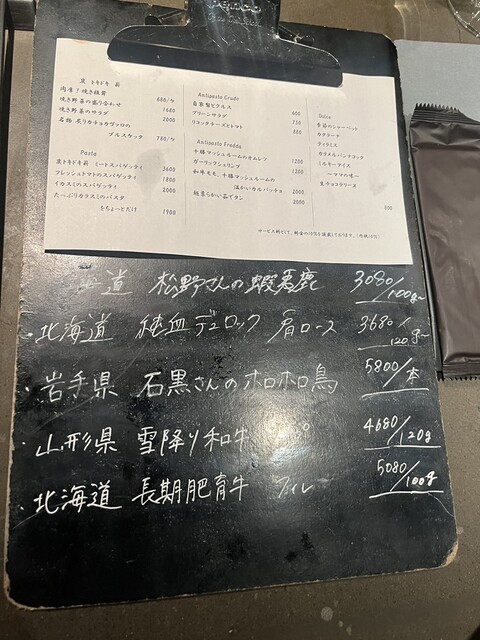 炭 トキドキ 薪
肉厚！焼き椎茸 680/ケ
焼き野菜の盛り合わせ 1680
焼き野菜のサラダ 2000
名物 炙りカチョカヴァロの
ブルスケッタ 780/ケ
Pasta
炭トキドキ薪 ミートスパゲッティ 3600
フレッシュトマトのスパゲッティ 1800
イカスミのスパゲッティ 2000
たっぷりカラスミのパスタ
をちょっとだけ 1900
Antipasto Crudo
自家製ピクルス 600
グリーンサラダ 750
リコッタチーズとトマト 880
Antipasto Freddo
十勝マッシュルームのオムレツ 1200
ガーリックシュリンプ 1200
和牛モモ、十勝マッシュルームの
温かいカルパッチョ 2000
極柔らかい茹でタン 2000
Dolce
季節のシャーベット
カタラーナ
ティラミス
カラメルパンナコッタ
ミルキーアイス
～ママの味～
生チョコテリーヌ
880
サービス料として、料金の10%を頂戴しております。
海道 松野さんの蝦夷鹿 3080/100g~
・北海道 純血デュロック 肩ロース 3680/120g~
・岩手県 石黒さんのホロホロ鳥 5800/本
・山形県 雪降り和牛 4680/120g
・北海道 長期肥育牛 フィレ 5080/100g